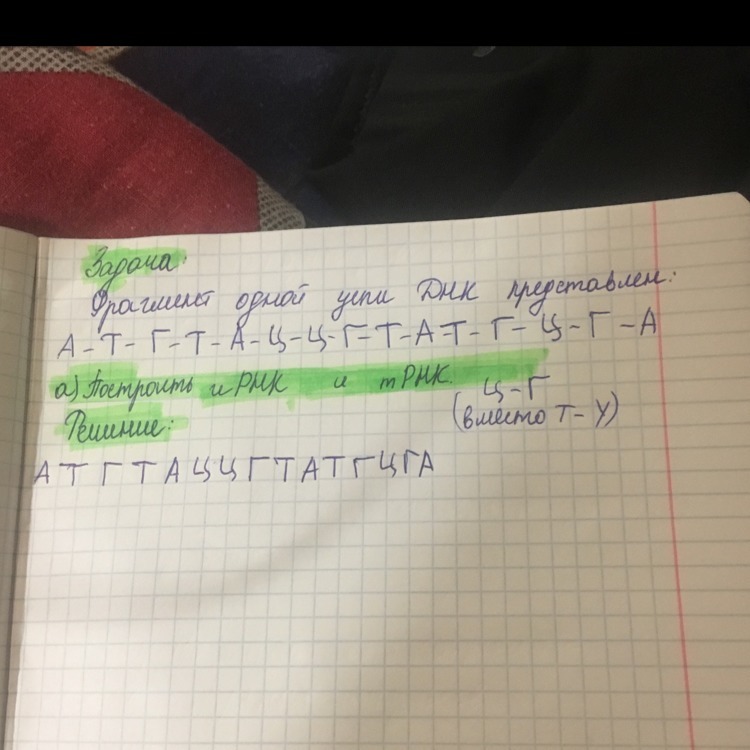 Задача:
Фрагмент одной цепи ДНК представлен:
А-Т-Г-Т-А-Ц-Ц-Г-Т-А-Т-Г-Ц-Г-А
а) Построить иРНК и тРНК.
Ц-Г
Решение:
(вместо Т-У)
АТГТАЦЦГТАТГЦГА